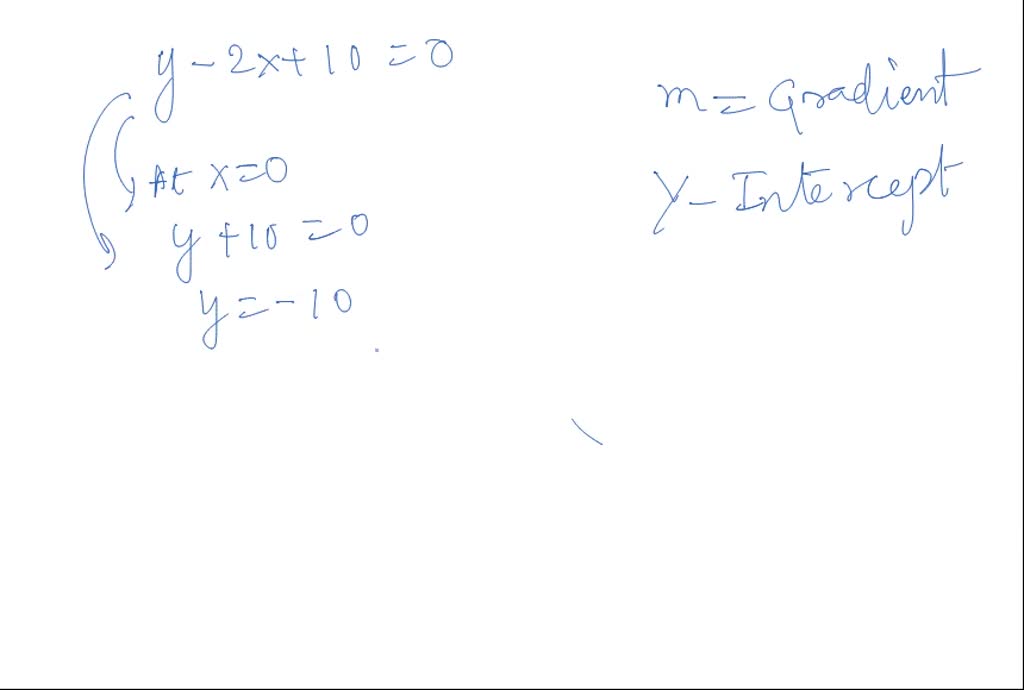 y - 2x + 10 = 0
At x = 0
y + 10 = 0
y = - 10
m = Gradient
Y - Intercept